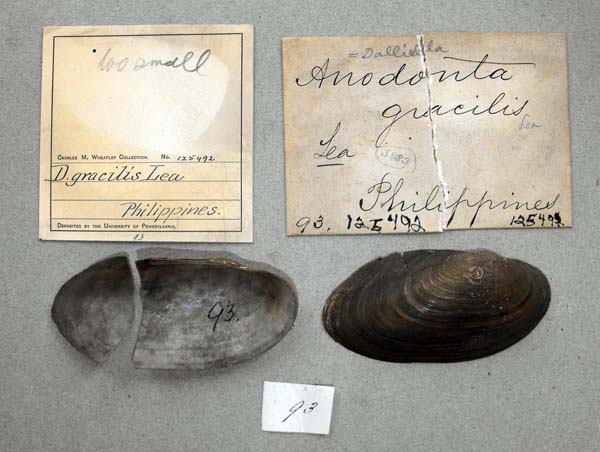 too small
CHARLES M. WHEATLEY COLLECTION. No. 125492
D. gracilis Lea
Philippines.
DEPOSITED BY THE UNIVERSITY OF PENNSYLVANIA.
93
= Dalliella
Anodonta
gracilis
Lea
Philippines
93. 125492 125492
93.
93